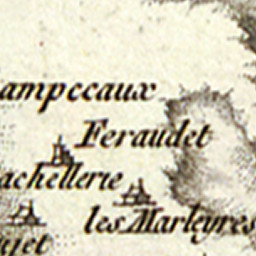 ampccaux
Feraudet
achellerie
les Marleyres
ujet